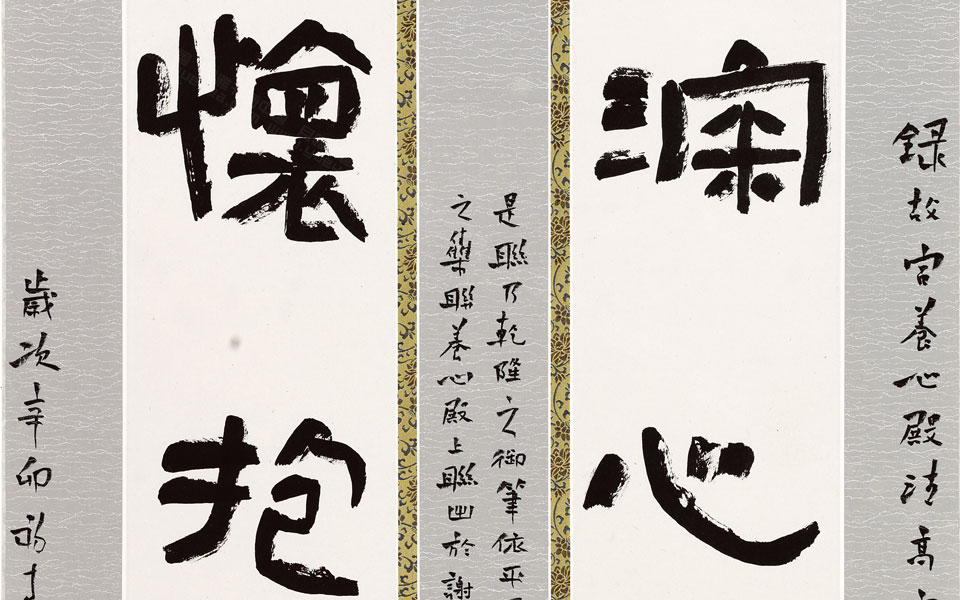 録故宮養心殿清高
深心
是聯乃乾隆之御筆依平
之集聯養心殿上聯出於謝
懷抱
歲次辛卯初